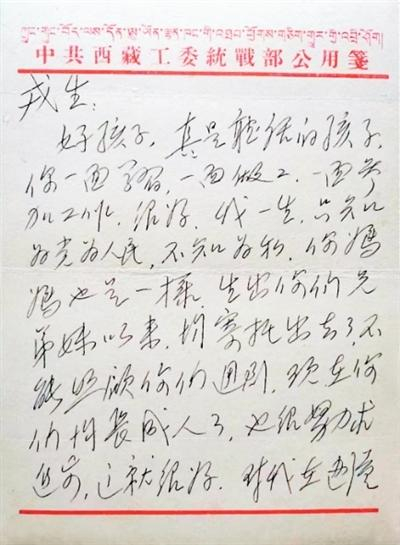 ཀྲུང་གུང་བོད་ལས་དོན་ཨུ་ཡོན་ལྷན་ཁང་གི་འཐབ་ཕྱོགས་གཅིག་གྱུར་གྱི་འབྲི་ཤོག།
中共西藏工委統戰部公用箋
戎生：
好孩子，真是聽話的孩子，
你一面學習，一面做工，一面參
加工作，很好，我一生，只知
为党为人民，不知为私，你媽
媽也是一様，生出你们兄
弟妹以来，均寄托出去了，不
能照顧你们週到，现在你
们均長成人了，也很努力求
進步，这就很好，在